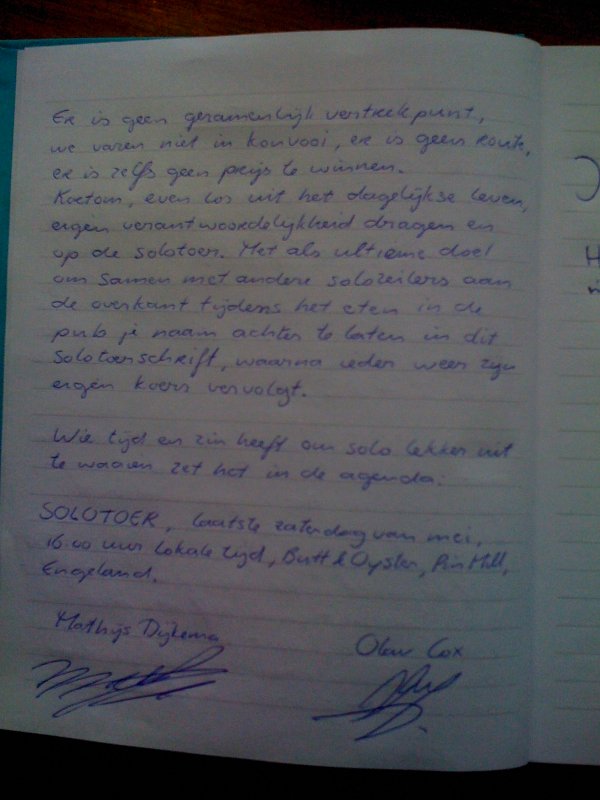 Er is geen gezamenlijk vertrekpunt,
we varen niet in konvooi, er is geen route,
er is zelfs geen prijs te winnen.
Kortom, even los uit het dagelijkse leven,
eigen verantwoordelijkheid dragen en
op de solotoer. Met als ultieme doel
om samen met andere solozeilers aan
de overkant tijdens het eten in de
pub je naam achter te laten in dit
Solotoerschrift, waarna ieder weer zijn
eigen koers vervolgt.
Wie tijd en zin heeft om solo lekker uit
te waaien zet het in de agenda:
SOLOTOER, laatste zaterdag van mei,
16.00 uur lokale tijd, Butt & Oyster, Pin Mill,
Engeland.
Mathijs Dijkema
Olav Cox
H